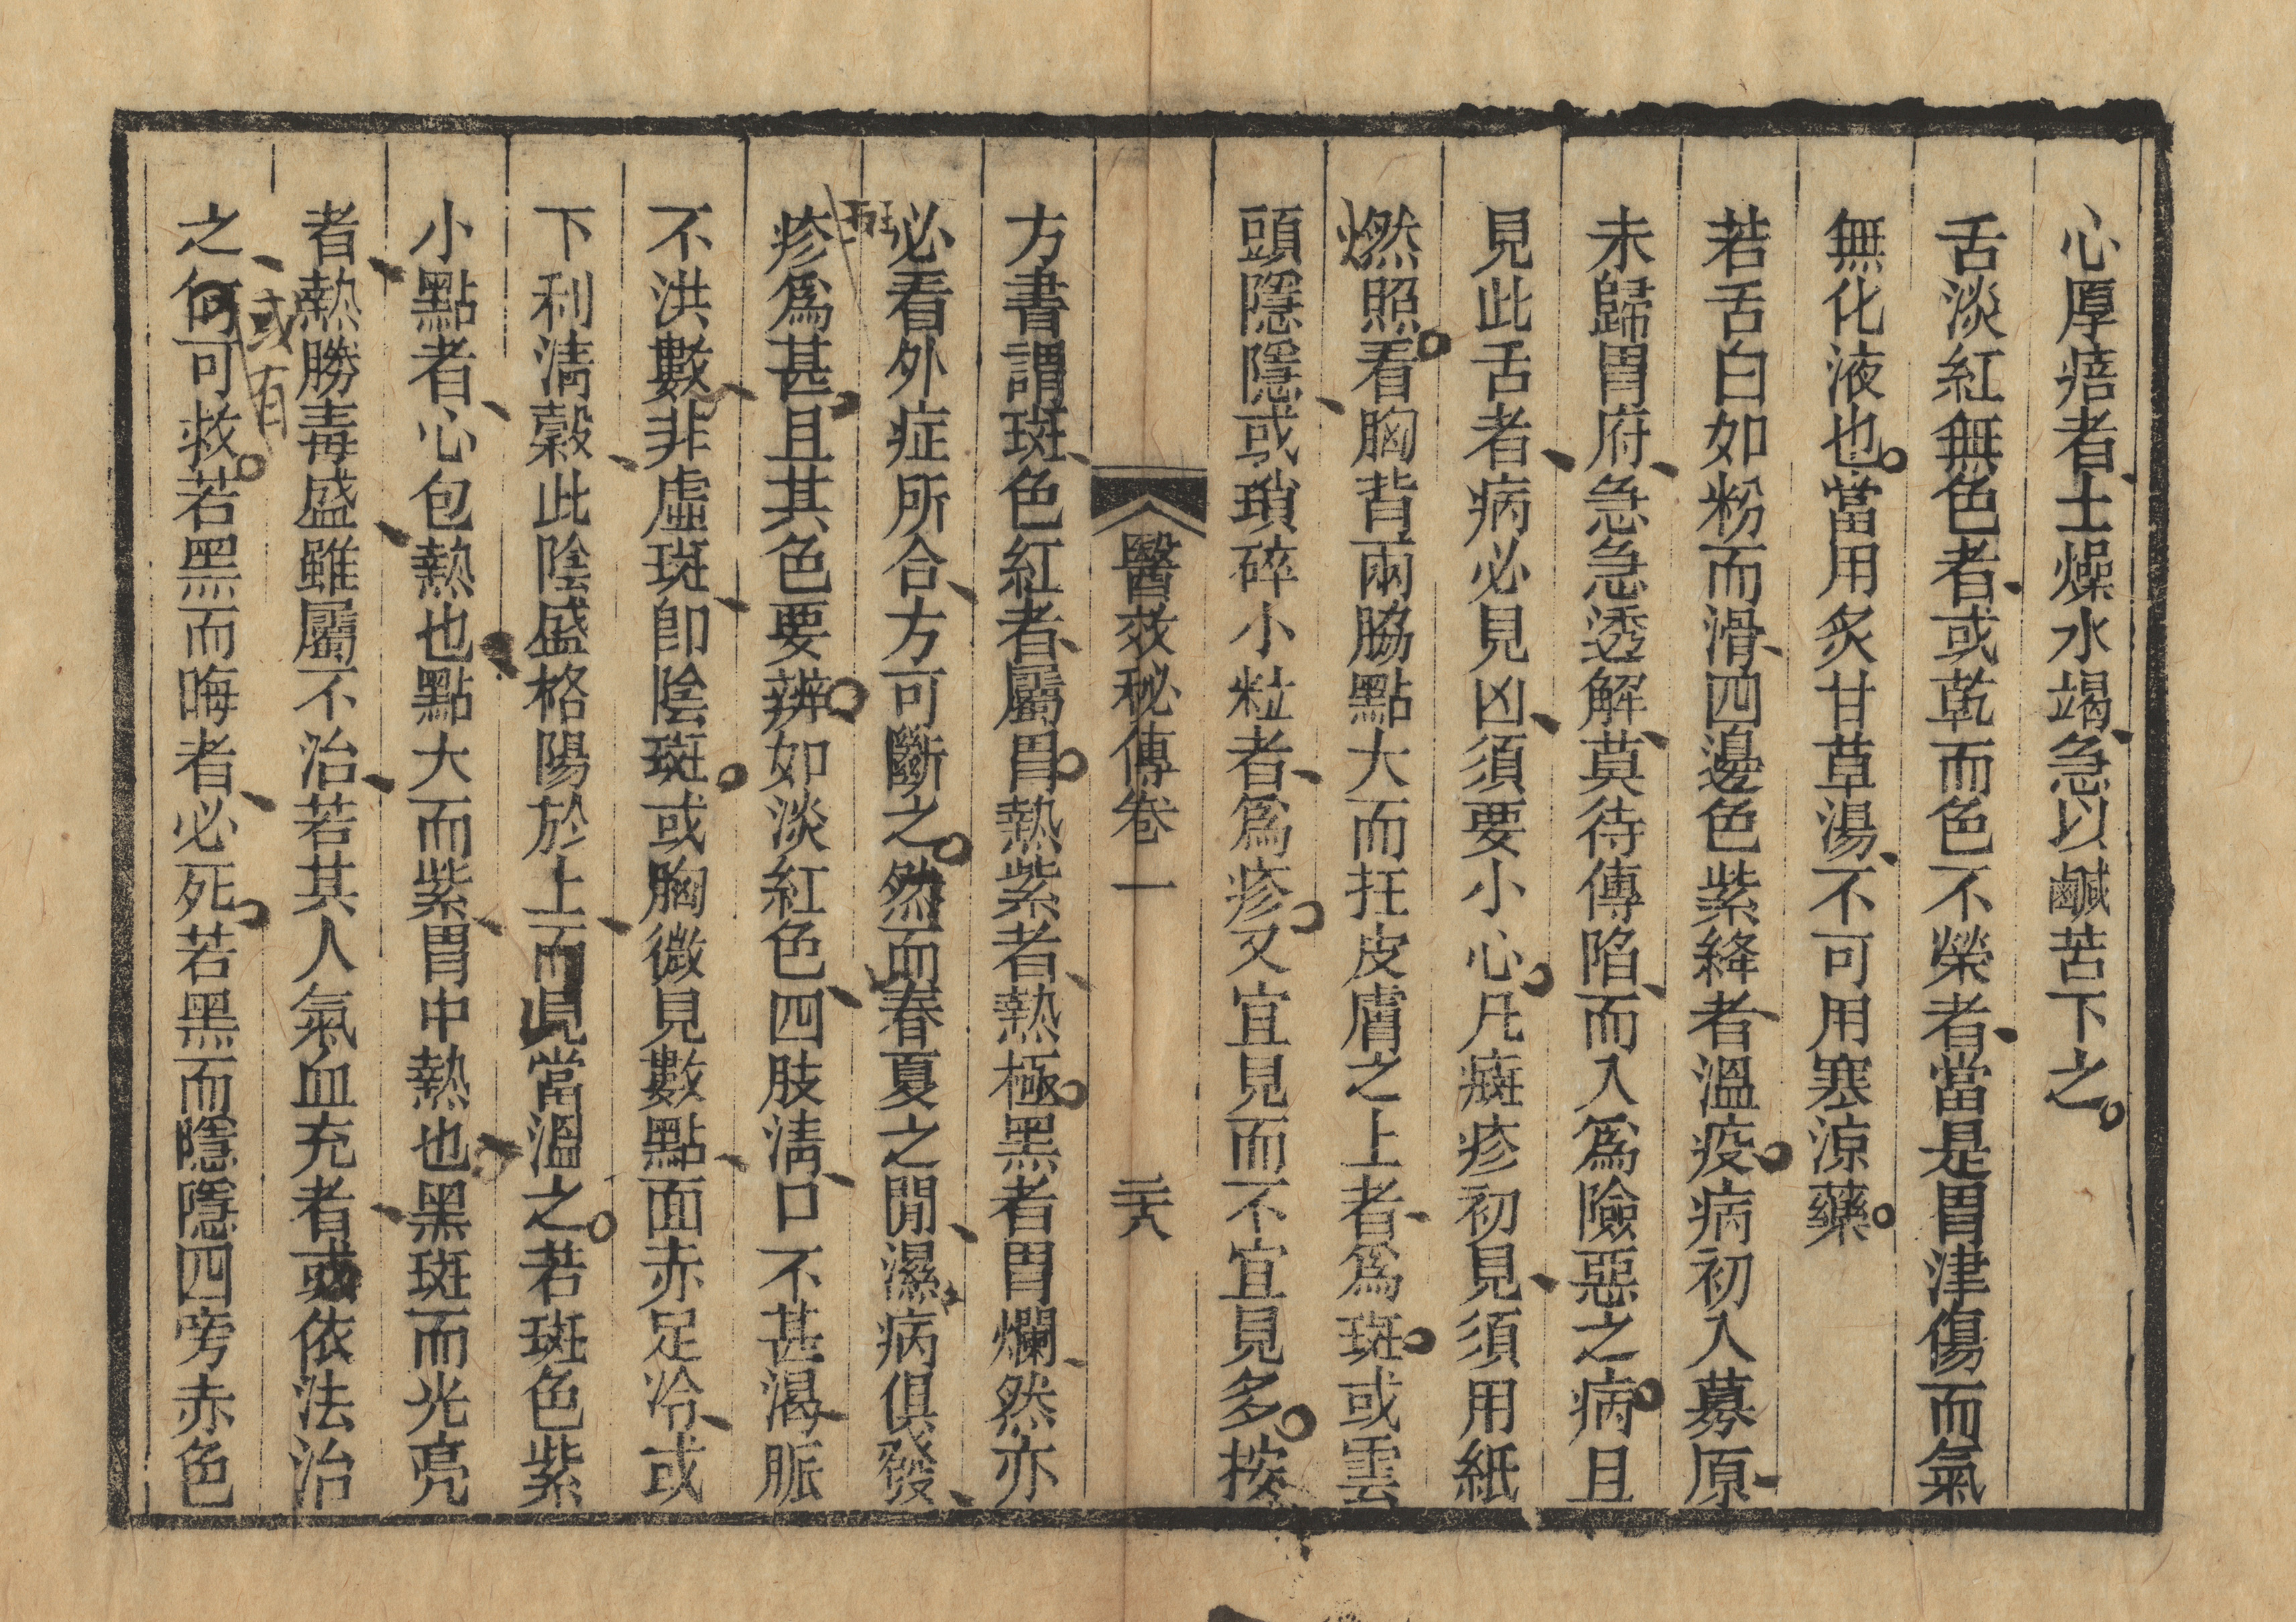 心厚痞者土燥水竭急以鹹苦下之
舌淡紅無色者或乾而色不榮者當是胃津傷而氣
無化液也當用炙甘草湯不可用寒涼藥
若舌白如粉而滑四邊色紫絳者溫疫病初入募原
未歸胃府急急透解莫待傳陷而入爲險惡之病且
見此舌者病必見凶須要小心凡癍疹初見須用紙
燃照看胸背兩脇點大而在皮膚之上者爲斑或雲
頭隱隱或瑣碎小粒者爲疹又宜見而不宜見多按
醫效秘傳卷一 二十八
方書謂斑色紅者屬胃熱紫者熱極黑者胃爛然亦
必看外症所合方可斷之然而春夏之閒濕病俱發
斑
疹爲甚且其色要辨如淡紅色四肢淸口不甚渴脈
不洪數非虛斑卽陰斑或胸微見數點面赤足冷或
下利淸穀此陰盛格陽於上而見當溫之若斑色紫
小點者心包熱也點大而紫胃中熱也黑斑而光亮
者熱勝毒盛雖屬不治若其人氣血充者或依法治
或有
之何可救若黑而晦者必死若黑而隱隱四旁赤色